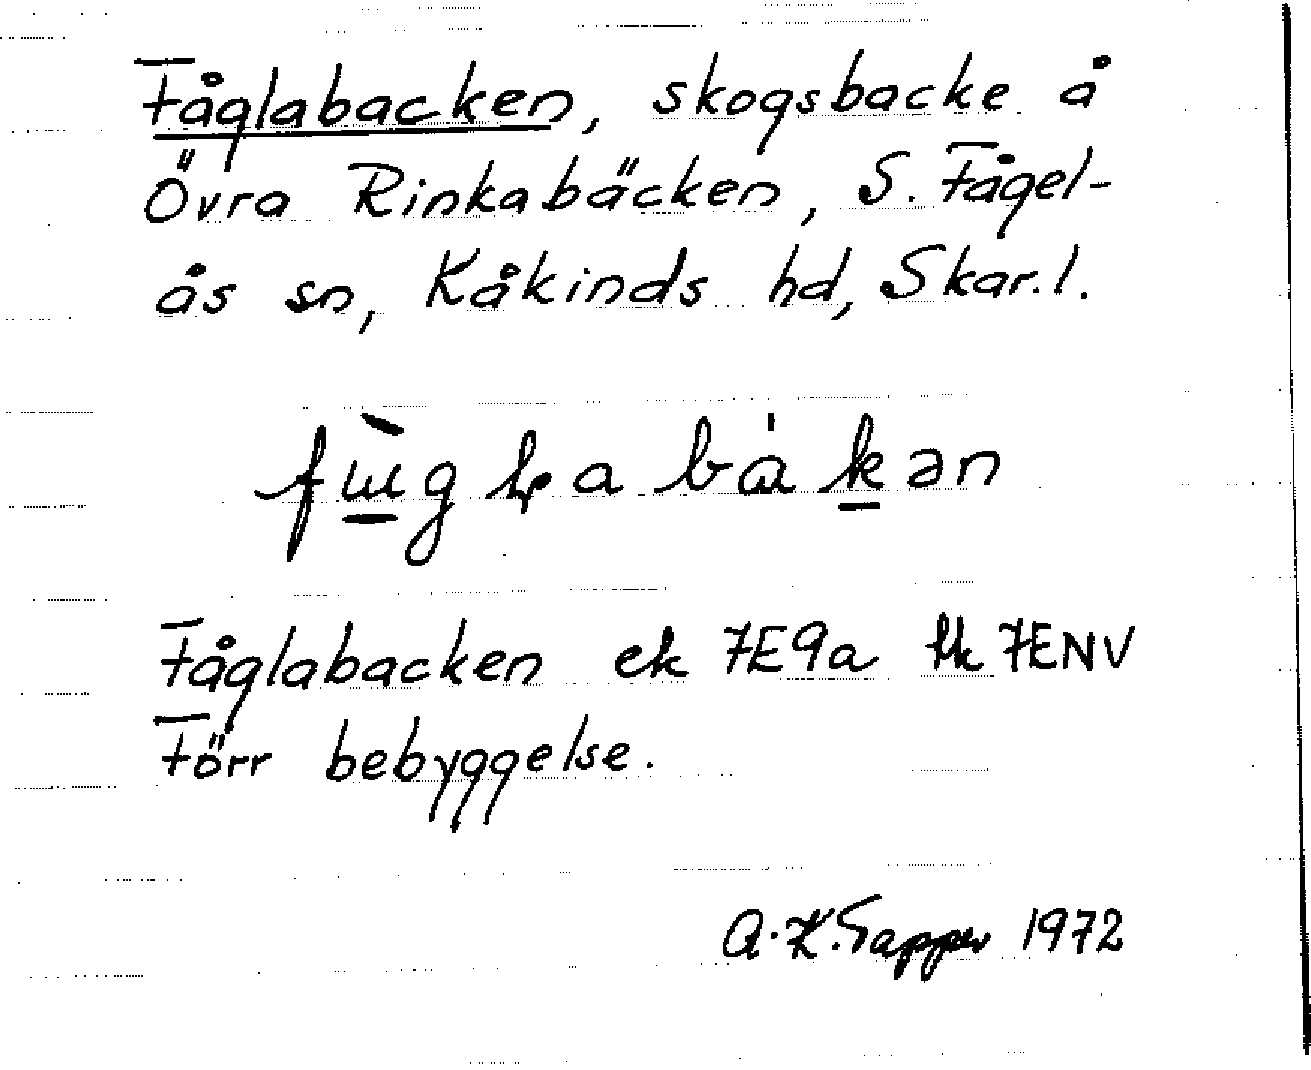 Fåglabacken, skogsbacke å
Övra Rinkabäcken, S. Fågel-
ås sn, Kåkinds hd, Skar.l.
Fåglabacken ek 7E9a tk 7ENV
Förr bebyggelse.
A.K. Tapper 1972